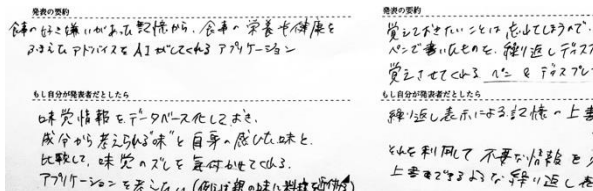 発表の要約
食事の好き嫌いがあった記憶から、食事の栄養や健康を
ふまえたアドバイスをAIがしてくれるアプリケーション
もし自分が発表者だとしたら
味覚情報をデータベース化しておき、
成分から考えられる"味"と自身の感じた味と、
比較して、味覚のズレを気付かせてくれる。
アプリケーションを考えたい
発表の要約
覚えておきたいことは忘れてしまうので、
ペンで書いたものを、繰り返しディス
覚えさせてくれる ペン & ディスプレ
もし自分が発表者だとしたら
繰り返し表示による記憶の上書
それを利用して 不要な情報を
上書きできるような 繰り返し表